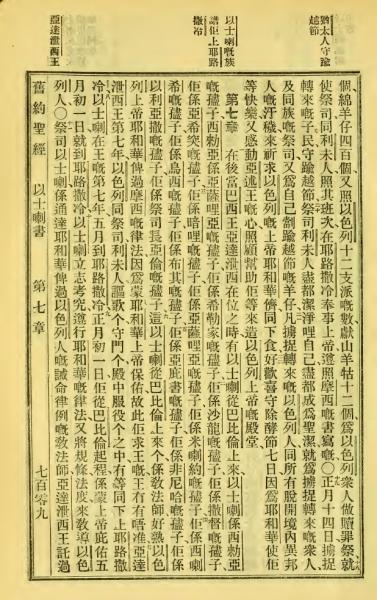 猶太人守踰
越節
以士喇嘅族
譜佢上耶路
撒冷
亞達泄西王
個綿羊仔四百個又照以色列十二支派嘅數獻山羊牯十二個爲以色列衆人做贖罪祭就
使祭司同利未人照其班次在耶路撒冷奉事上帝遵照摩西嘅書寫嘅○正月十四日擄捉
轉來嘅子民守踰越節祭司利未人盡都潔淨哩自己盡都成爲聖潔就爲擄捉轉來嘅衆人
及同族嘅祭司又爲自己劏踰越節嘅羊仔凡擄捉轉來嘅以色列人同所有脫開境內異邦
人嘅汙穢來祈求以色列嘅上帝耶和華儕同下食好歡喜守除酵節七日因爲耶和華使佢
等快樂又感動亞述王嘅心照顧幫助佢等來造以色列上帝嘅殿堂
第七章 在後當巴西王亞達泄西在位之時有以士喇從巴比倫上來以士喇係西勑亞
嘅孻子西勑亞係亞薩哩亞嘅孻子佢係希勒家嘅孻子佢係沙龍嘅孻子佢係撒督嘅孻子
佢係亞希突嘅孻子佢係暗哩嘅孻子佢係亞薩哩亞嘅孻子佢係米喇約嘅孻子佢係西喇
希嘅孻子佢係烏西嘅孻子佢係布其嘅孻子佢係亞庇書嘅孻子佢係非尼哈嘅孻子佢係
以利亞撒嘅孻子佢係祭司長亞倫嘅孻子這以士喇從巴比倫上來个係教法師好熟以色
列上帝耶和華俾過摩西嘅律法因爲蒙耶和華上帝保佑故此佢求王嘅王冇有唔准亞達
泄西王第七年以色列同祭司利未人謳歌人守門个殿中服役个之中有等同下上耶路撒
冷以士喇在王嘅第七年五月到耶路撒冷正月初一日佢從巴比倫起程係蒙上帝庇佑五
月初一日就到耶路撒冷以士喇立志考究遵行耶和華嘅律法又將規條法度來教導以色
列人○祭司以士喇係通達耶和華俾過以色列人嘅誡命律例嘅教法師亞達泄西王託過
舊約聖經 以士喇書 第七章 七百零九